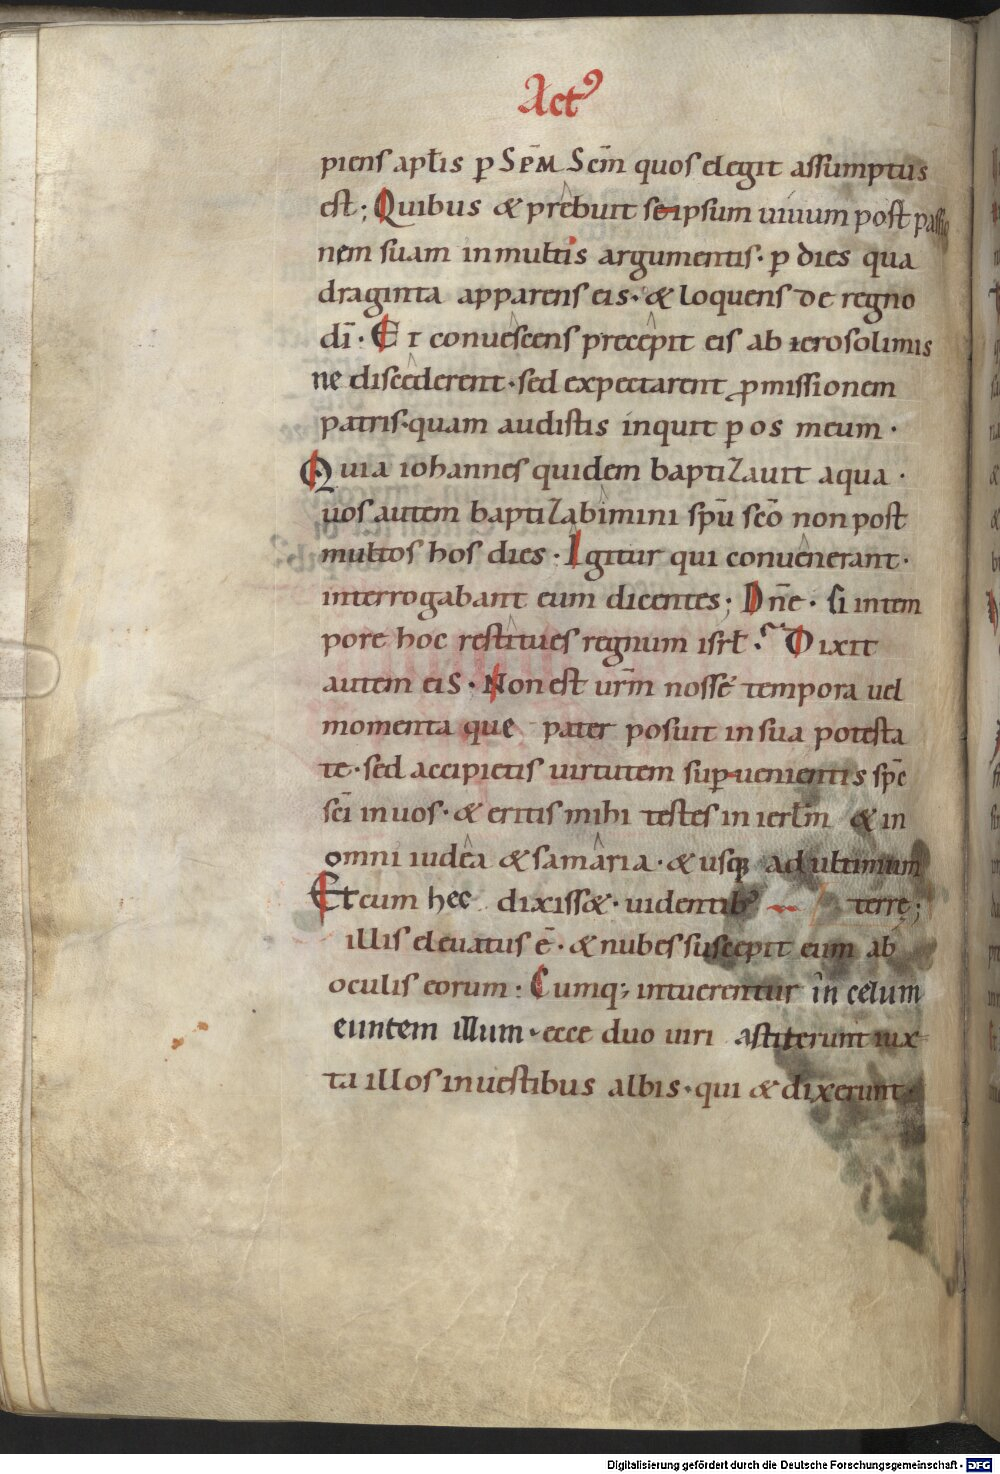 Act᾿
piens apłis p̱ Sp̄m Scm̄ quos elegit assumptus
est; Quibus & prebuit seipsum uiuum post passio
nem suam in multis argumentis· p̱ dies qua
draginta apparens eis· & loquens de regno
dī· Et conuescens precepit eis ab ierosolimis
ne discederent· sed expectarent ꝓmissionem
patris· quam audistis inquit p̱ os meum·
Quia iohannes quidem baptizauit aqua·
uos autem baptizabimini spū scō non post
multos hos dies· Igitur qui conuenerant·
interrogabant eum dicentes; Dn̄e· si in tem
pore hoc restitues regnum isrł? Dixit
autem eis· Non est urm̄ nosse tempora uel
momenta que pater posuit in sua potesta
te· sed accipietis uirtutem sup̱uenientis spc̄
scī in uos· & eritis mihi testes in ierłm & in
omni iudea & samaria· & usqꝫ ad ultimum
terrę;
Et cum hec dixiss&· uidentib᾿
illis eleuatus ē· & nubes suscepit eum ab
oculis eorum: Cumq; intuerentur in celum
euntem illum· ecce duo uiri astiterunt iux
ta illos in uestibus albis· qui & dixerunt·
Digitalisierung gefördert durch die Deutsche Forschungsgemeinschaft - DFG